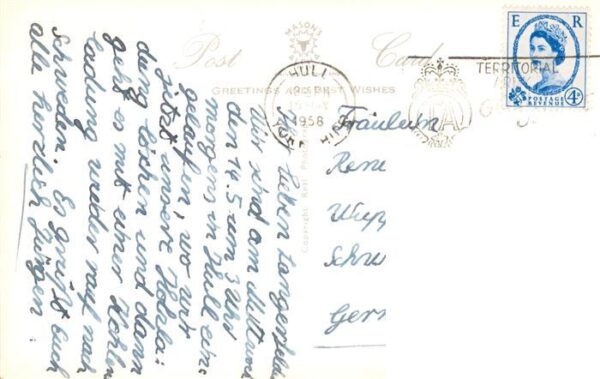 MASON'S
Post Card
GREETINGS AND BEST WISHES
HULL
1958
YORKSHIRE
TERRITORIAL
E R
POSTAGE
REVENUE
4D
lieben
Wir sind am Mittwoch
den 14.5 um 3 Uhr
morgens in Hull ein:
gelaufen, wo wir
jetzt unsere Holzla:
dung löschen und dann
geht es mit einer Kohlen
ladung wieder rauf nach
Schweden. Es grüßt Euch
alle herzlich Jürgen.
Fräulein
Rene
Ger
Copyright Real Photo